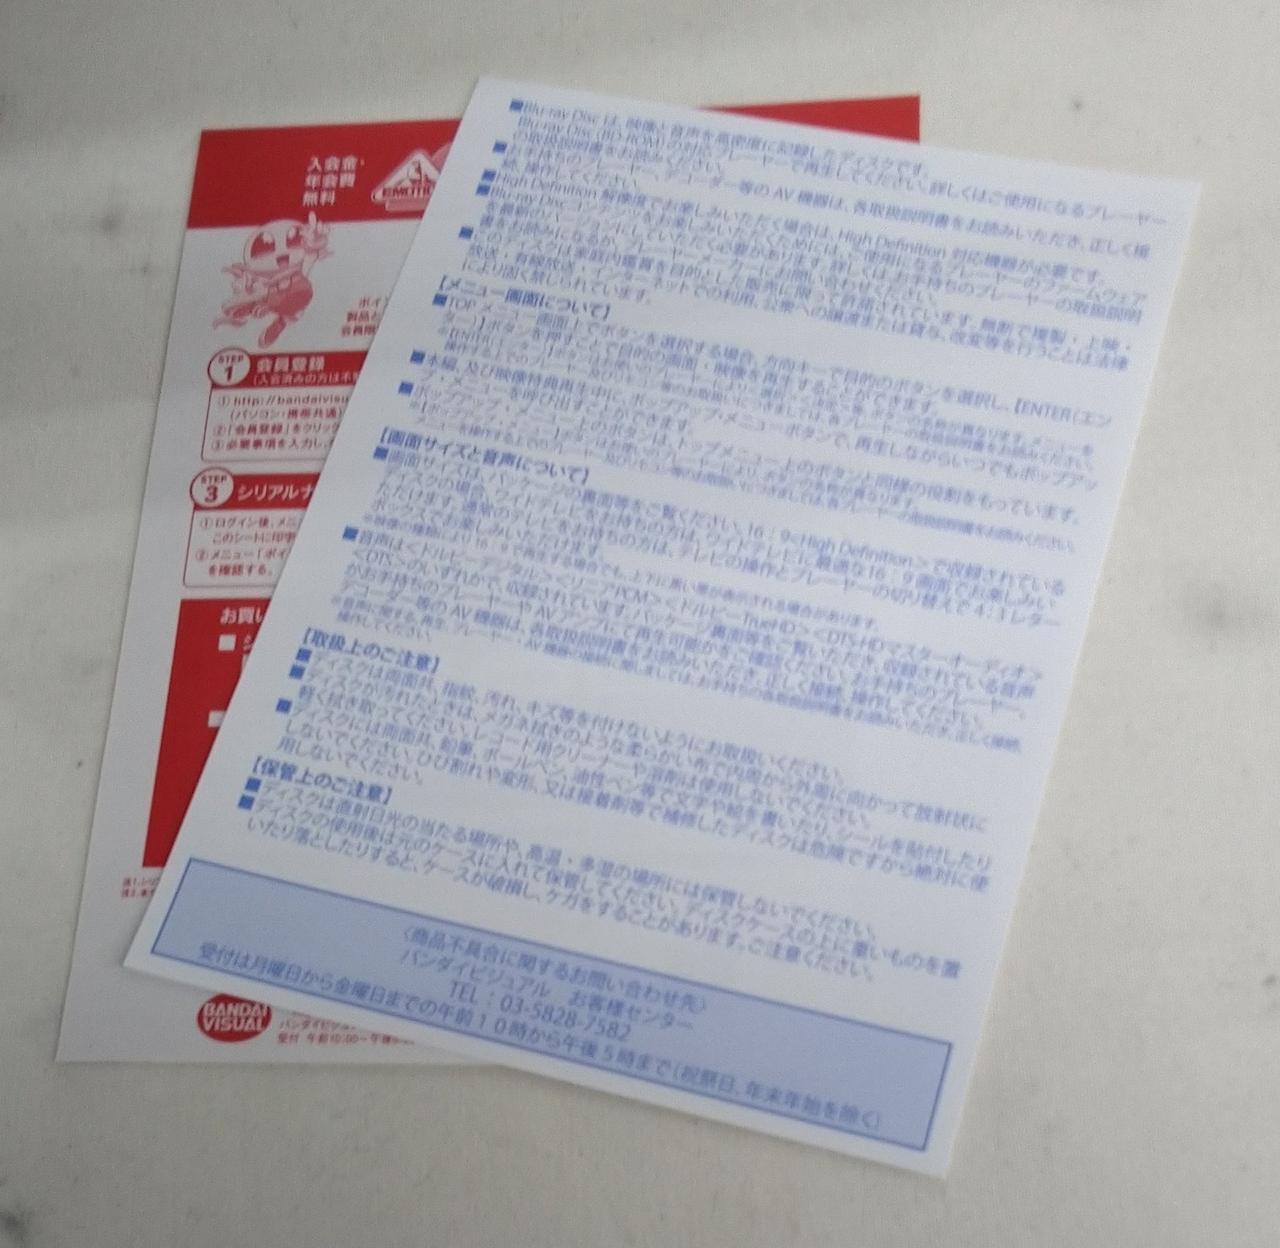 入会金・
年会費
無料
EMOTIO
ポイン
製品と
会員限
STEP
1
会員登録
(入会済みの方は不
① http://bandaivisu
(パソコン・携帯共通)
②「会員登録」をクリック
③ 必要事項を入力し、
STEP
3
シリアルナ
① ログイン後、メニ
このシートに印字
② メニュー「ポイ
を確認する。
お買い
BANDAI
VISUAL
バンダイビジュ
受付 午前10:00~午後
■Blu-ray Disc は、映像と音声を高密度に記録したディスクです。
Blu-ray Disc (BD-ROM) の対応プレーヤーで再生してください。詳しくはご使用になるプレーヤー
の取扱説明書をお読みください。
■お手持ちのプレーヤー、デコーダー等の AV 機器は、各取扱説明書をお読みいただき、正しく接
続、操作してください。
■High Definition 解像度でお楽しみいただく場合は、High Definition 対応機器が必要です。
■Blu-ray Disc コンテンツをお楽しみいただくためには、ご使用になるプレーヤーのファームウェア
を最新のバージョンにしていただく必要があります。詳しくは、お手持ちのプレーヤーの取扱説明
書をお読みになるか、プレーヤーメーカーにお問い合わせください。
■このディスクは家庭内鑑賞を目的とした販売に限って許諾されています。無断で複製・上映・
放送・有線放送・インターネットでの利用、公衆への譲渡または貸与、改変等を行うことは法律
により固く禁じられています。
【メニュー画面について】
■TOP メニュー画面上でボタンを選択する場合、方向キーで目的のボタンを選択し、【ENTER(エン
ター)】ボタンを押すことで目的の画面・映像を再生することができます。
■本編、及び映像特典再生中に、ポップアップ・メニューボタンで、再生しながらいつでもポップアッ
プ・メニューを呼び出すことができます。
■ポップアップ・メニュー上のボタンは、トップメニュー上のボタンと同様の役割をもっています。
【画面サイズと音声について】
■画面サイズは、パッケージの裏面等をご覧ください。16:9<High Definition>で収録されている
ディスクの場合、ワイドテレビをお持ちの方は、ワイドテレビに最適な16:9画面でお楽しみい
ただけます。通常のテレビをお持ちの方は、テレビの操作とプレーヤーの切り替えで4:3レター
ボックスでお楽しみいただけます。
※映像の種類により16:9で再生する場合でも、上下に黒い帯が表示される場合があります。
■音声は<ドルビーデジタル><リニアPCM><ドルビーTrueHD><DTS-HDマスターオーディオ>
<DTS>のいずれかで、収録されています。パッケージ裏面等をご覧いただき、収録されている音声
がお手持ちのプレーヤーや AV アンプ、で再生可能かをご確認ください。お手持ちのプレーヤー、
デコーダー等の AV 機器は、各取扱説明書をお読みいただき、正しく接続、操作してください。
操作してください。
【取扱上のご注意】
■ディスクは両面共、指紋、汚れ、キズ等を付けないようにお取扱いください。
■ディスクが汚れたときは、メガネ拭きのような柔らかい布で内周から外周に向かって放射状に
軽く拭き取ってください。レコード用クリーナーや溶剤は使用しないでください。
■ディスクには両面共、鉛筆、ボールペン、油性ペン等で文字や絵を書いたり、シールを貼付したり
しないでください。ひび割れや変形、又は接着剤等で補修したディスクは危険ですから絶対に使
用しないでください。
【保管上のご注意】
■ディスクは直射日光の当たる場所や、高温・多湿の場所には保管しないでください。
■ディスクの使用後は元のケースに入れて保管してください。ディスクケースの上に重いものを置
いたり落としたりすると、ケースが破損し、ケガをすることがあります。ご注意ください。
〈商品不具合に関するお問い合わせ先〉
バンダイビジュアル お客様センター
TEL:03-5828-7582
受付は月曜日から金曜日までの午前10時から午後5時まで(祝祭日、年末年始を除く)